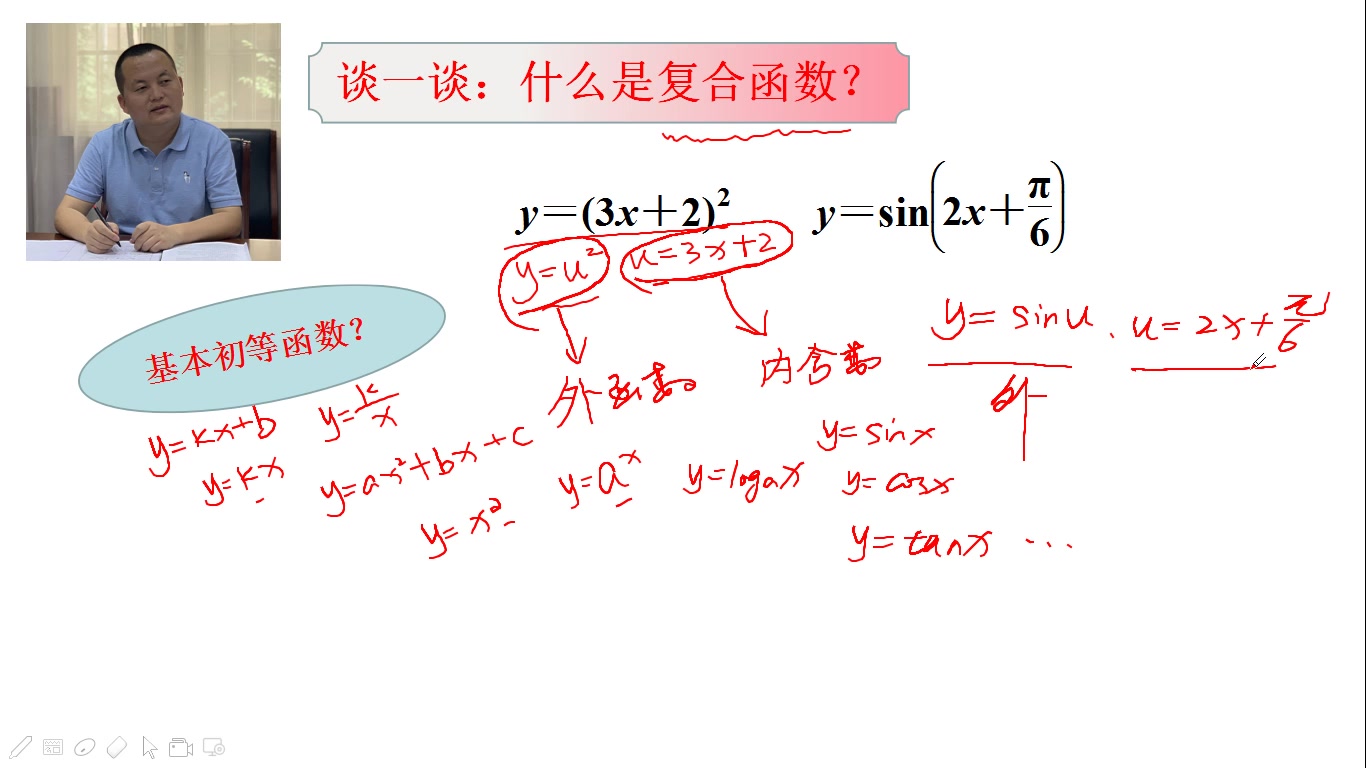 谈一谈：什么是复合函数？
y＝(3x＋2)²
y＝sin(2x＋π/6)
y=u²
u=3x+2
y=sinu . u=2x+π/6
基本初等函数？
外函数。
内函数
外
y=kx+b
y=k/x
y=kx
y=ax²+bx+c
y=x²
y=aˣ
y=logax
y=sinx
y=cosx
y=tanx ...